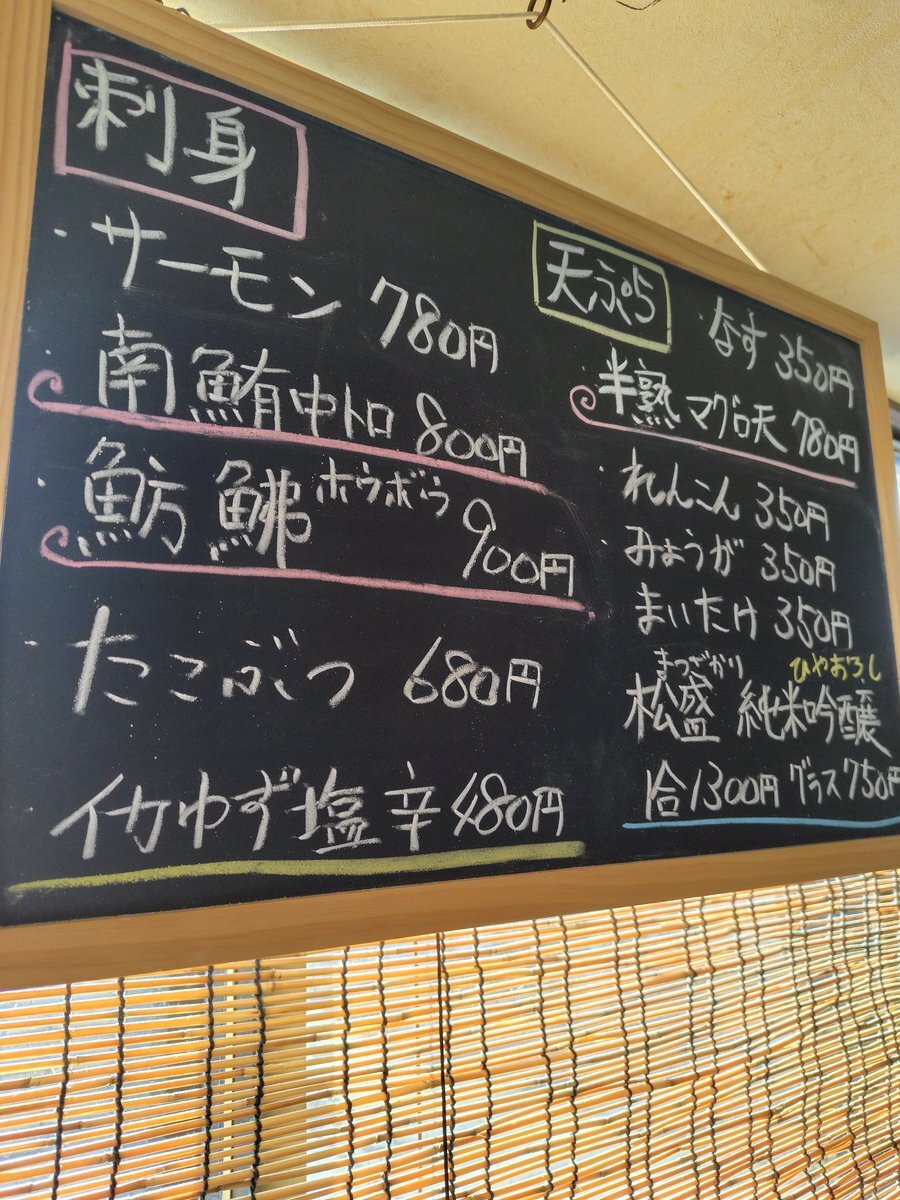 刺身
・サーモン 780円
・南鮪中トロ 800円
・魴鮄 ホウボウ 900円
・たこぶつ 680円
イカゆず塩辛 480円
天ぷら
・なす 350円
・半熟マグロ天 780円
・れんこん 350円
・みょうが 350円
まいたけ 350円
まつざかり ひやおろし
松盛 純米吟醸
1合1300円 グラス750円